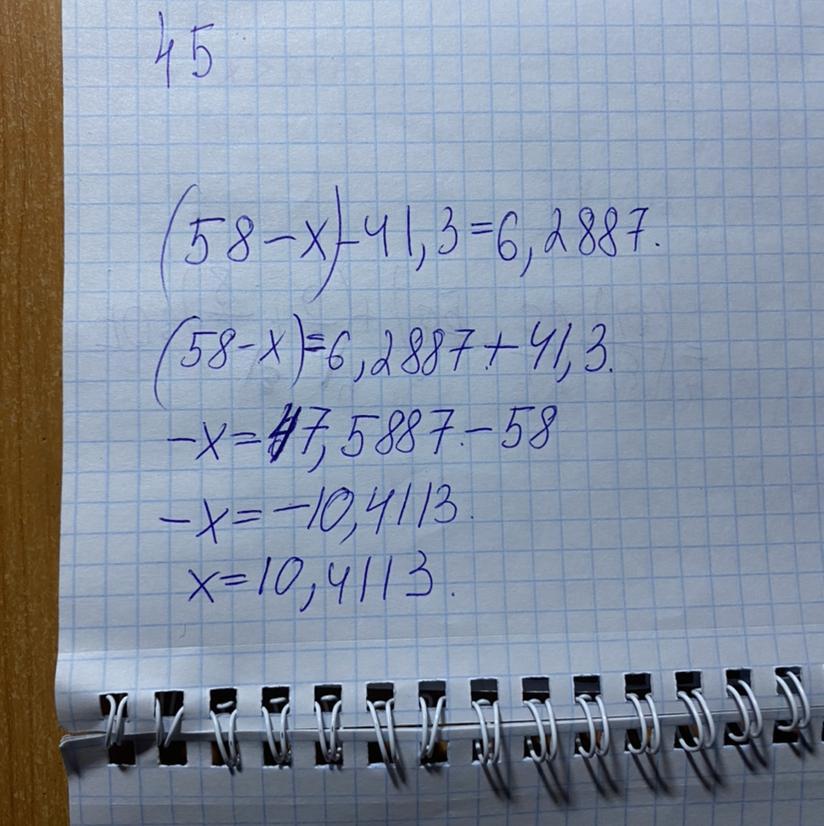 45
(58-x)-41,3=6,2887.
(58-x)=6,2887+41,3.
-x=47,5887-58
-x=-10,4113.
x=10,4113.